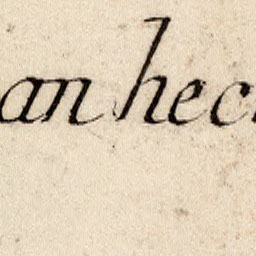 an hec